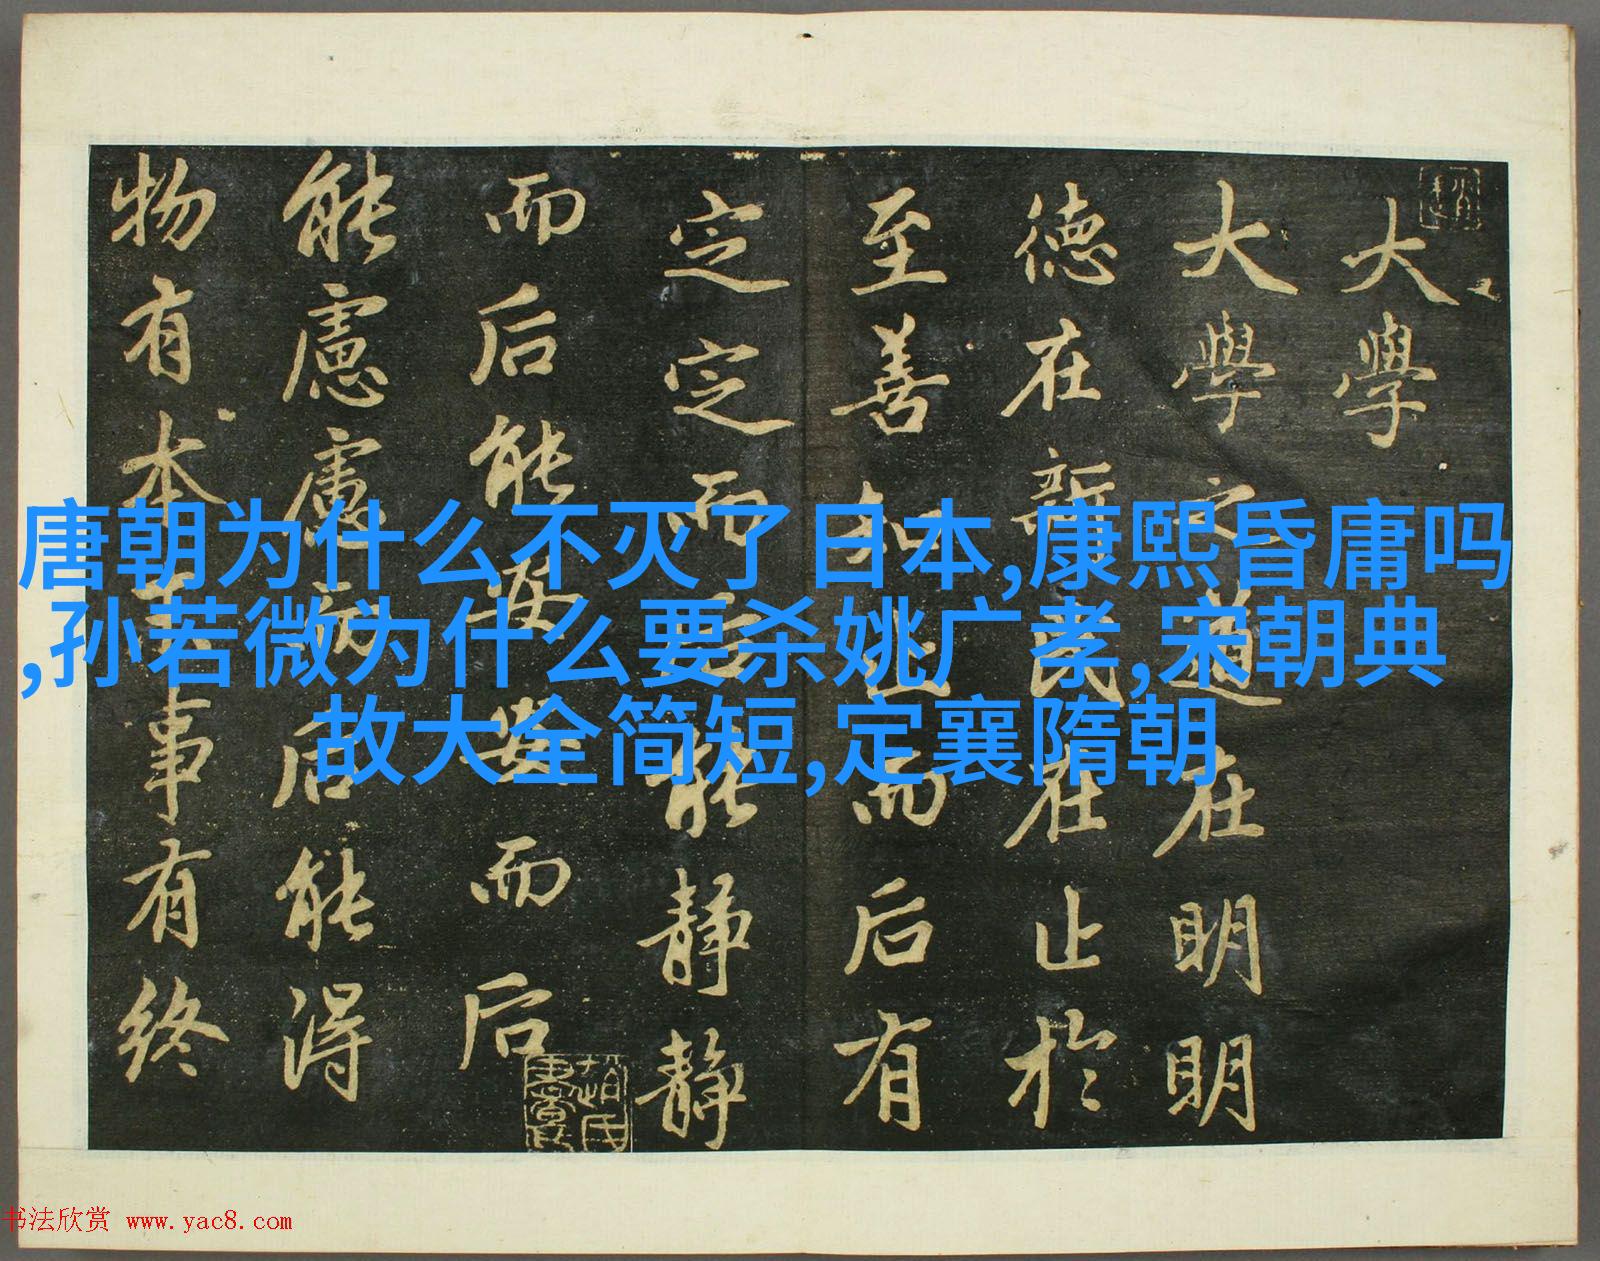 大學
大學之道在明明
德在新民在止於
至善知止而后有
定定而后能静静
而后能安安而后
能慮慮而后能得
物有本末事有終
唐朝为什么不灭了日本,康熙昏庸吗
,孙若微为什么要杀姚广孝,宋朝典
故大全简短,定襄隋朝
书法欣赏 www.yac8.com